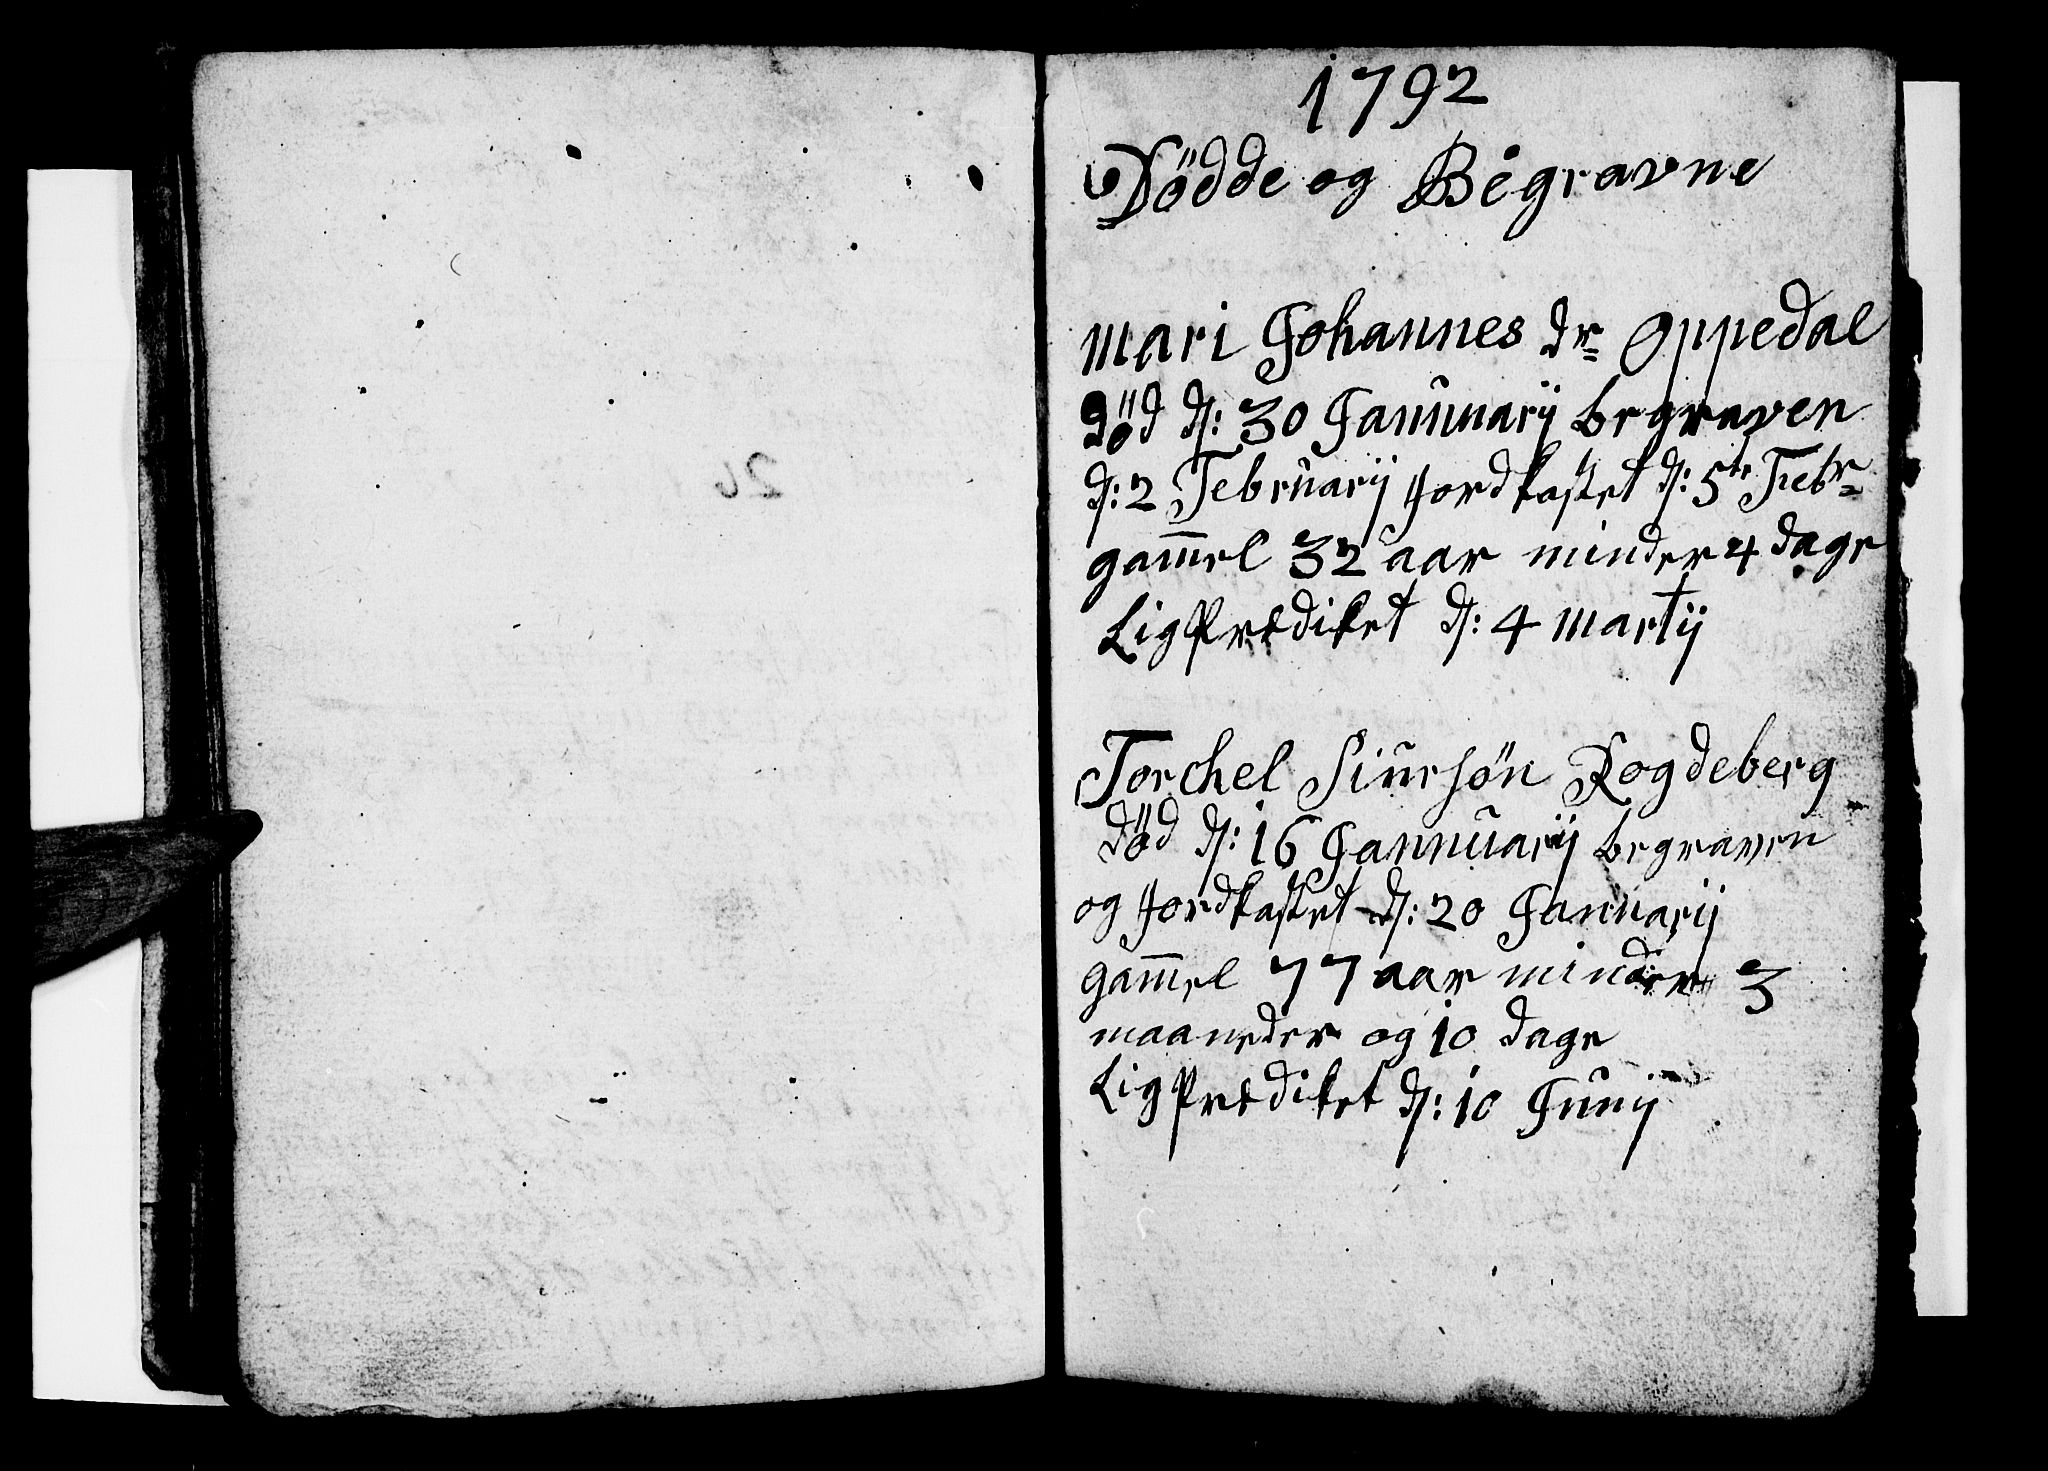 1792
Dödde og Begravne
Mari Johannes dr Oppedal
död d: 30 Januuarij begraven
d: 2 Februarij Jordkastet d: 5te Febr
gam̄el 32 aar minder 4 dage
Lig Prædiket d: 4 Martij
Torchel Siursön Rogdeberg
död d: 16 Jannuarij begraven
og Jordkastet d: 20 Januarij
gam̄el 77 aar minder 3
maaneder og 10 dage
Lig Prædiket d: 10 Junij